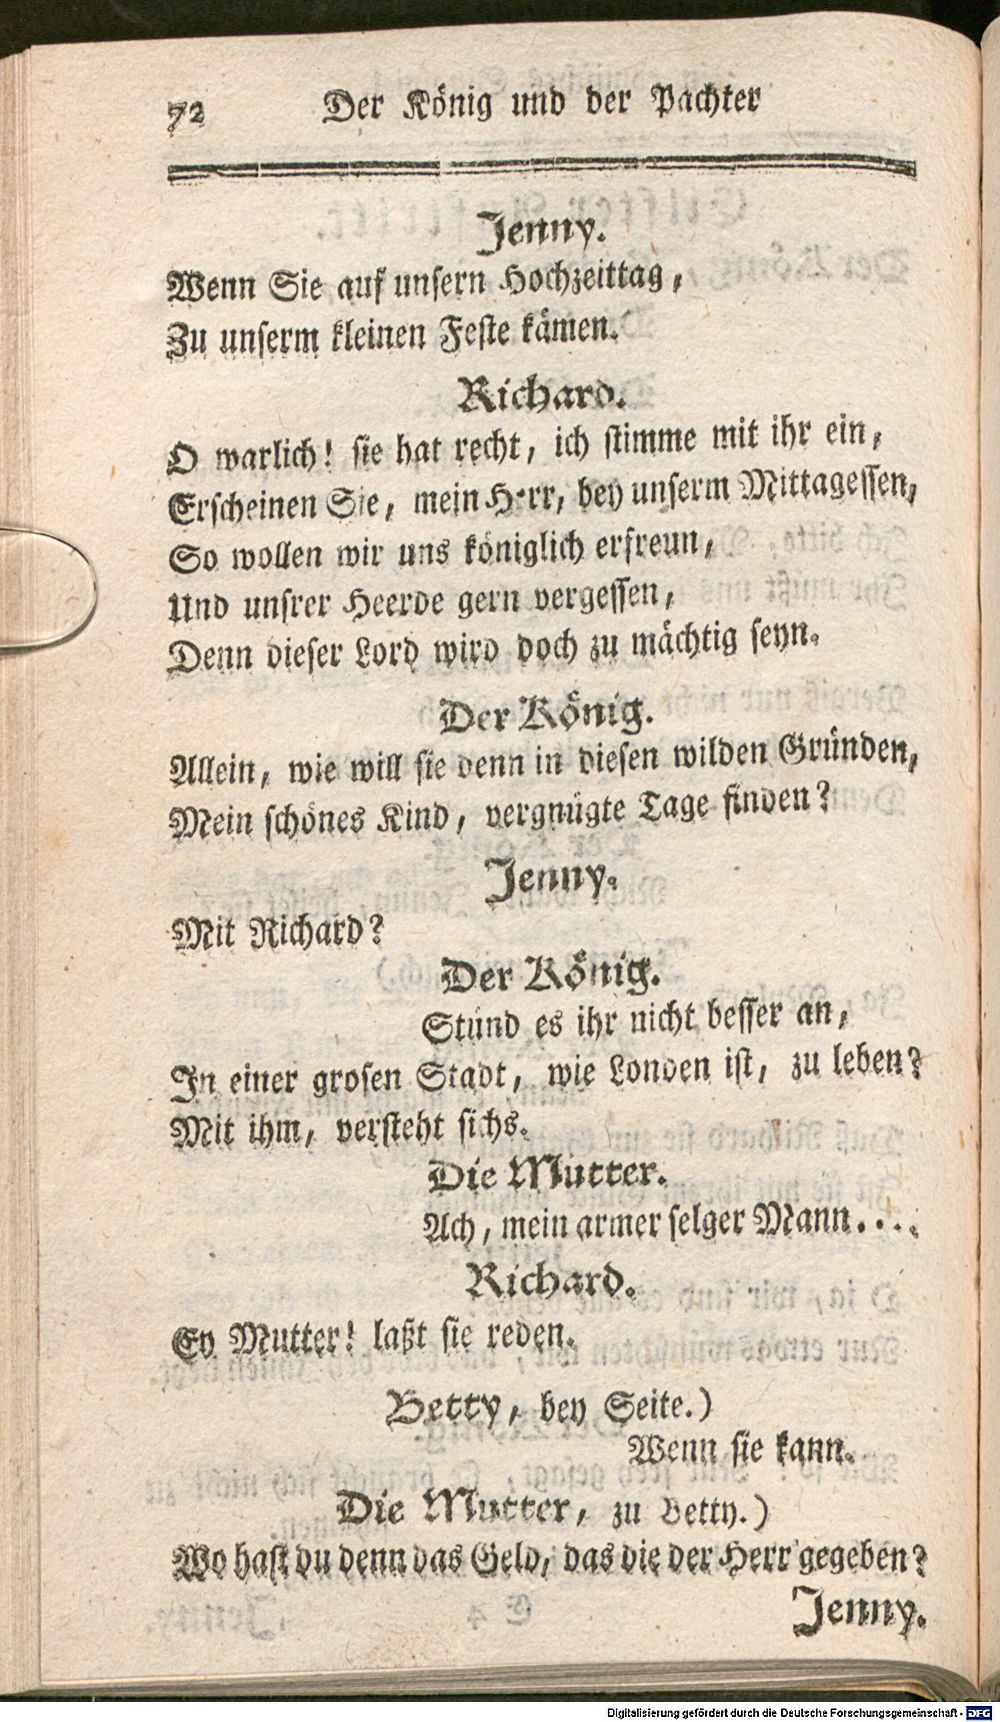 72 Der König und der Pachter
Jenny.
Wenn Sie auf unsern Hochzeittag,
Zu unserm kleinen Feste kämen.
Richard.
O warlich! sie hat recht, ich stimme mit ihr ein,
Erscheinen Sie, mein Herr, bey unserm Mittagessen,
So wollen wir uns königlich erfreun,
Und unsrer Heerde gern vergessen,
Denn dieser Lord wird doch zu mächtig seyn.
Der König.
Allein, wie will sie denn in diesen wilden Gründen,
Mein schönes Kind, vergnügte Tage finden?
Jenny.
Mit Richard?
Der König.
Stünd es ihr nicht besser an,
In einer grosen Stadt, wie Londen ist, zu leben?
Mit ihm, versteht sichs.
Die Mutter.
Ach, mein armer selger Mann....
Richard.
Ey Mutter! laßt sie reden.
Betty, bey Seite.)
Wenn sie kann.
Die Mutter, zu Betty.)
Wo hast du denn das Geld, das die der Herr gegeben?
Jenny.
Digitalisierung gefördert durch die Deutsche Forschungsgemeinschaft - DFG